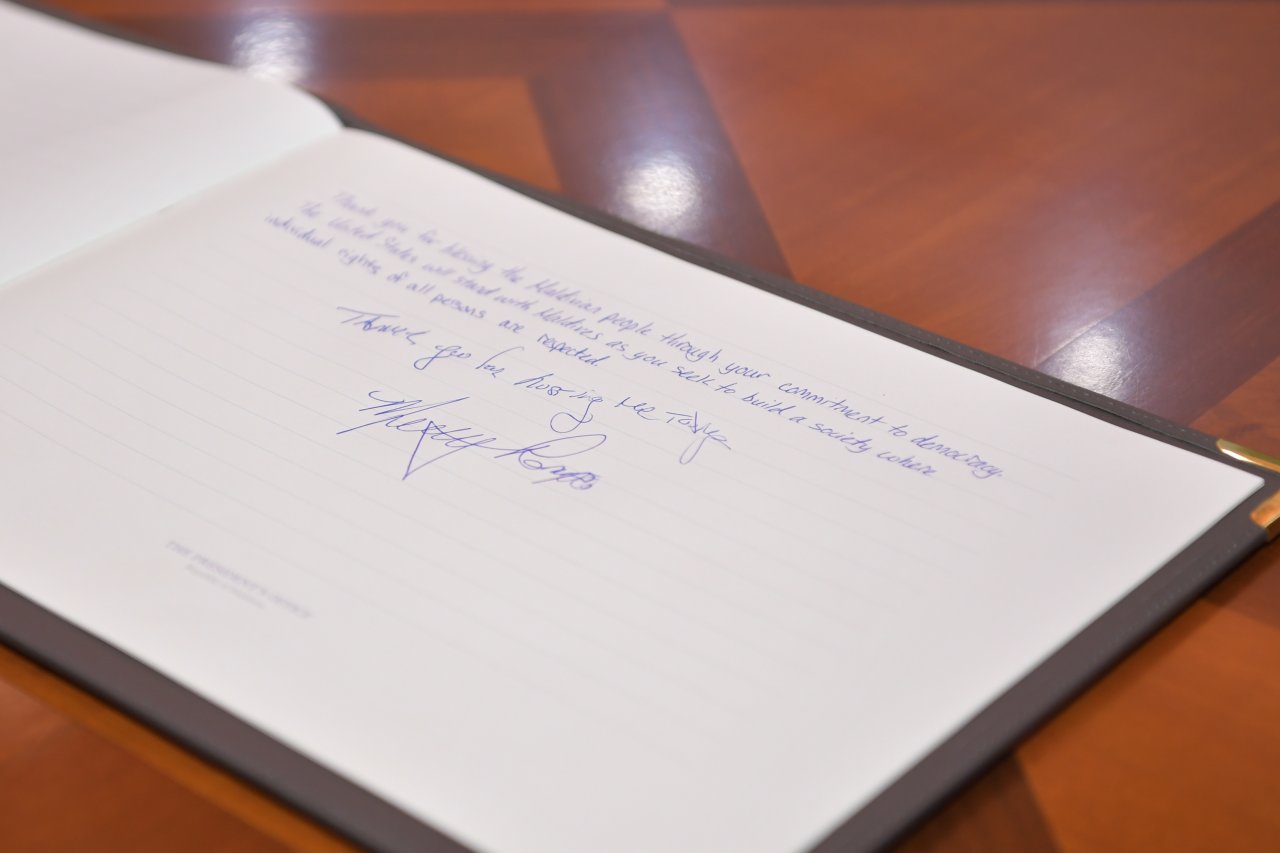 Thank you for blessing the Maldivian people through your commitment to democracy.
The United States will stand with Maldives as you seek to build a society where
individual rights of all persons are respected.
Thank you for hosting me today
THE PRESIDENT'S OFFICE